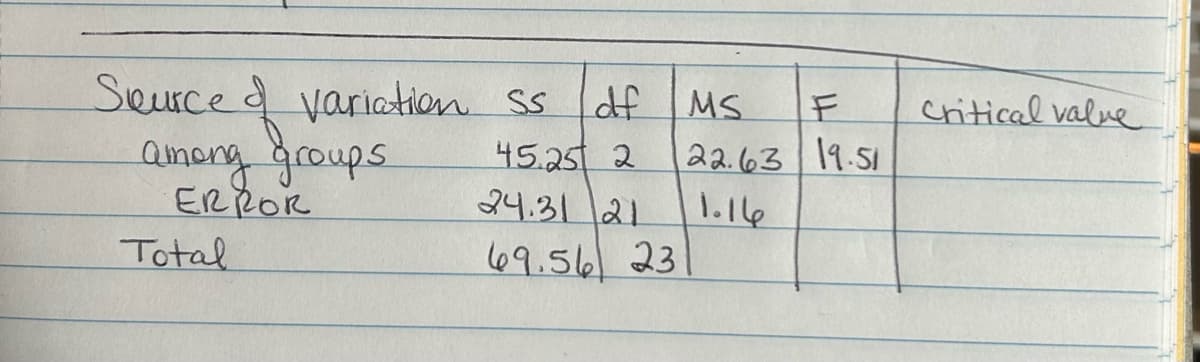 Source of variation SS df MS F Critical value
among groups 45.25 2 22.63 19.51
ERROR 24.31 21 1.16
Total 69.56 23